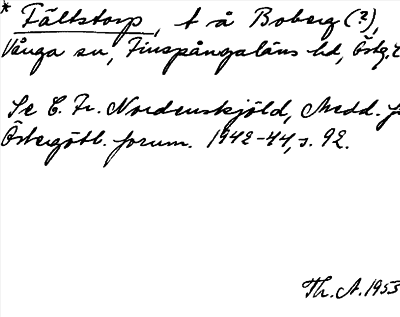 * Fältstorp, t å Boberg (?),
Vånga sn, Finspångaläns hd, Östg.
Se C. Fr. Nordenskjöld, Medd. f
Östergötl. fornm. 1942-44, s. 92.
Th. A. 1953